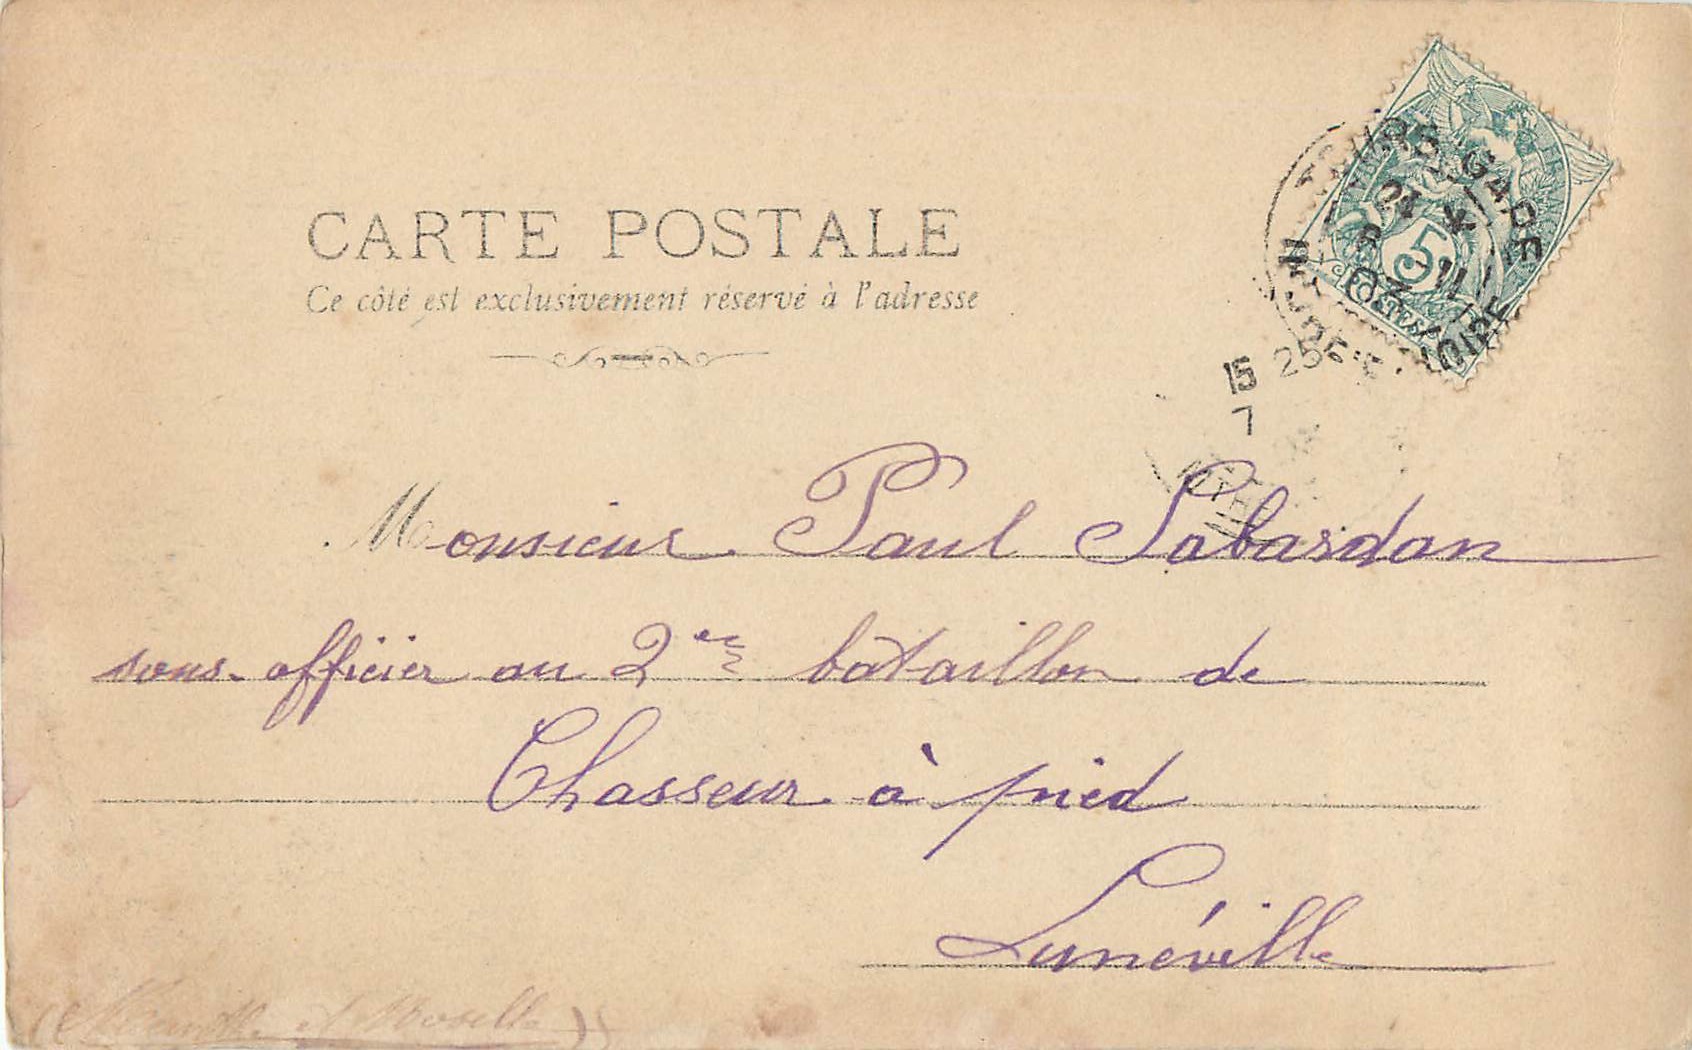 CARTE POSTALE
Ce côté est exclusivement réservé à l'adresse
TOURS GARE
INDRE-ET-LOIRE
5
POSTES
15 25
7
Monsieur Paul Labardan
sous-officier au 2e bataillon de
Chasseur à pied
Lunéville
(Meurthe et Moselle)